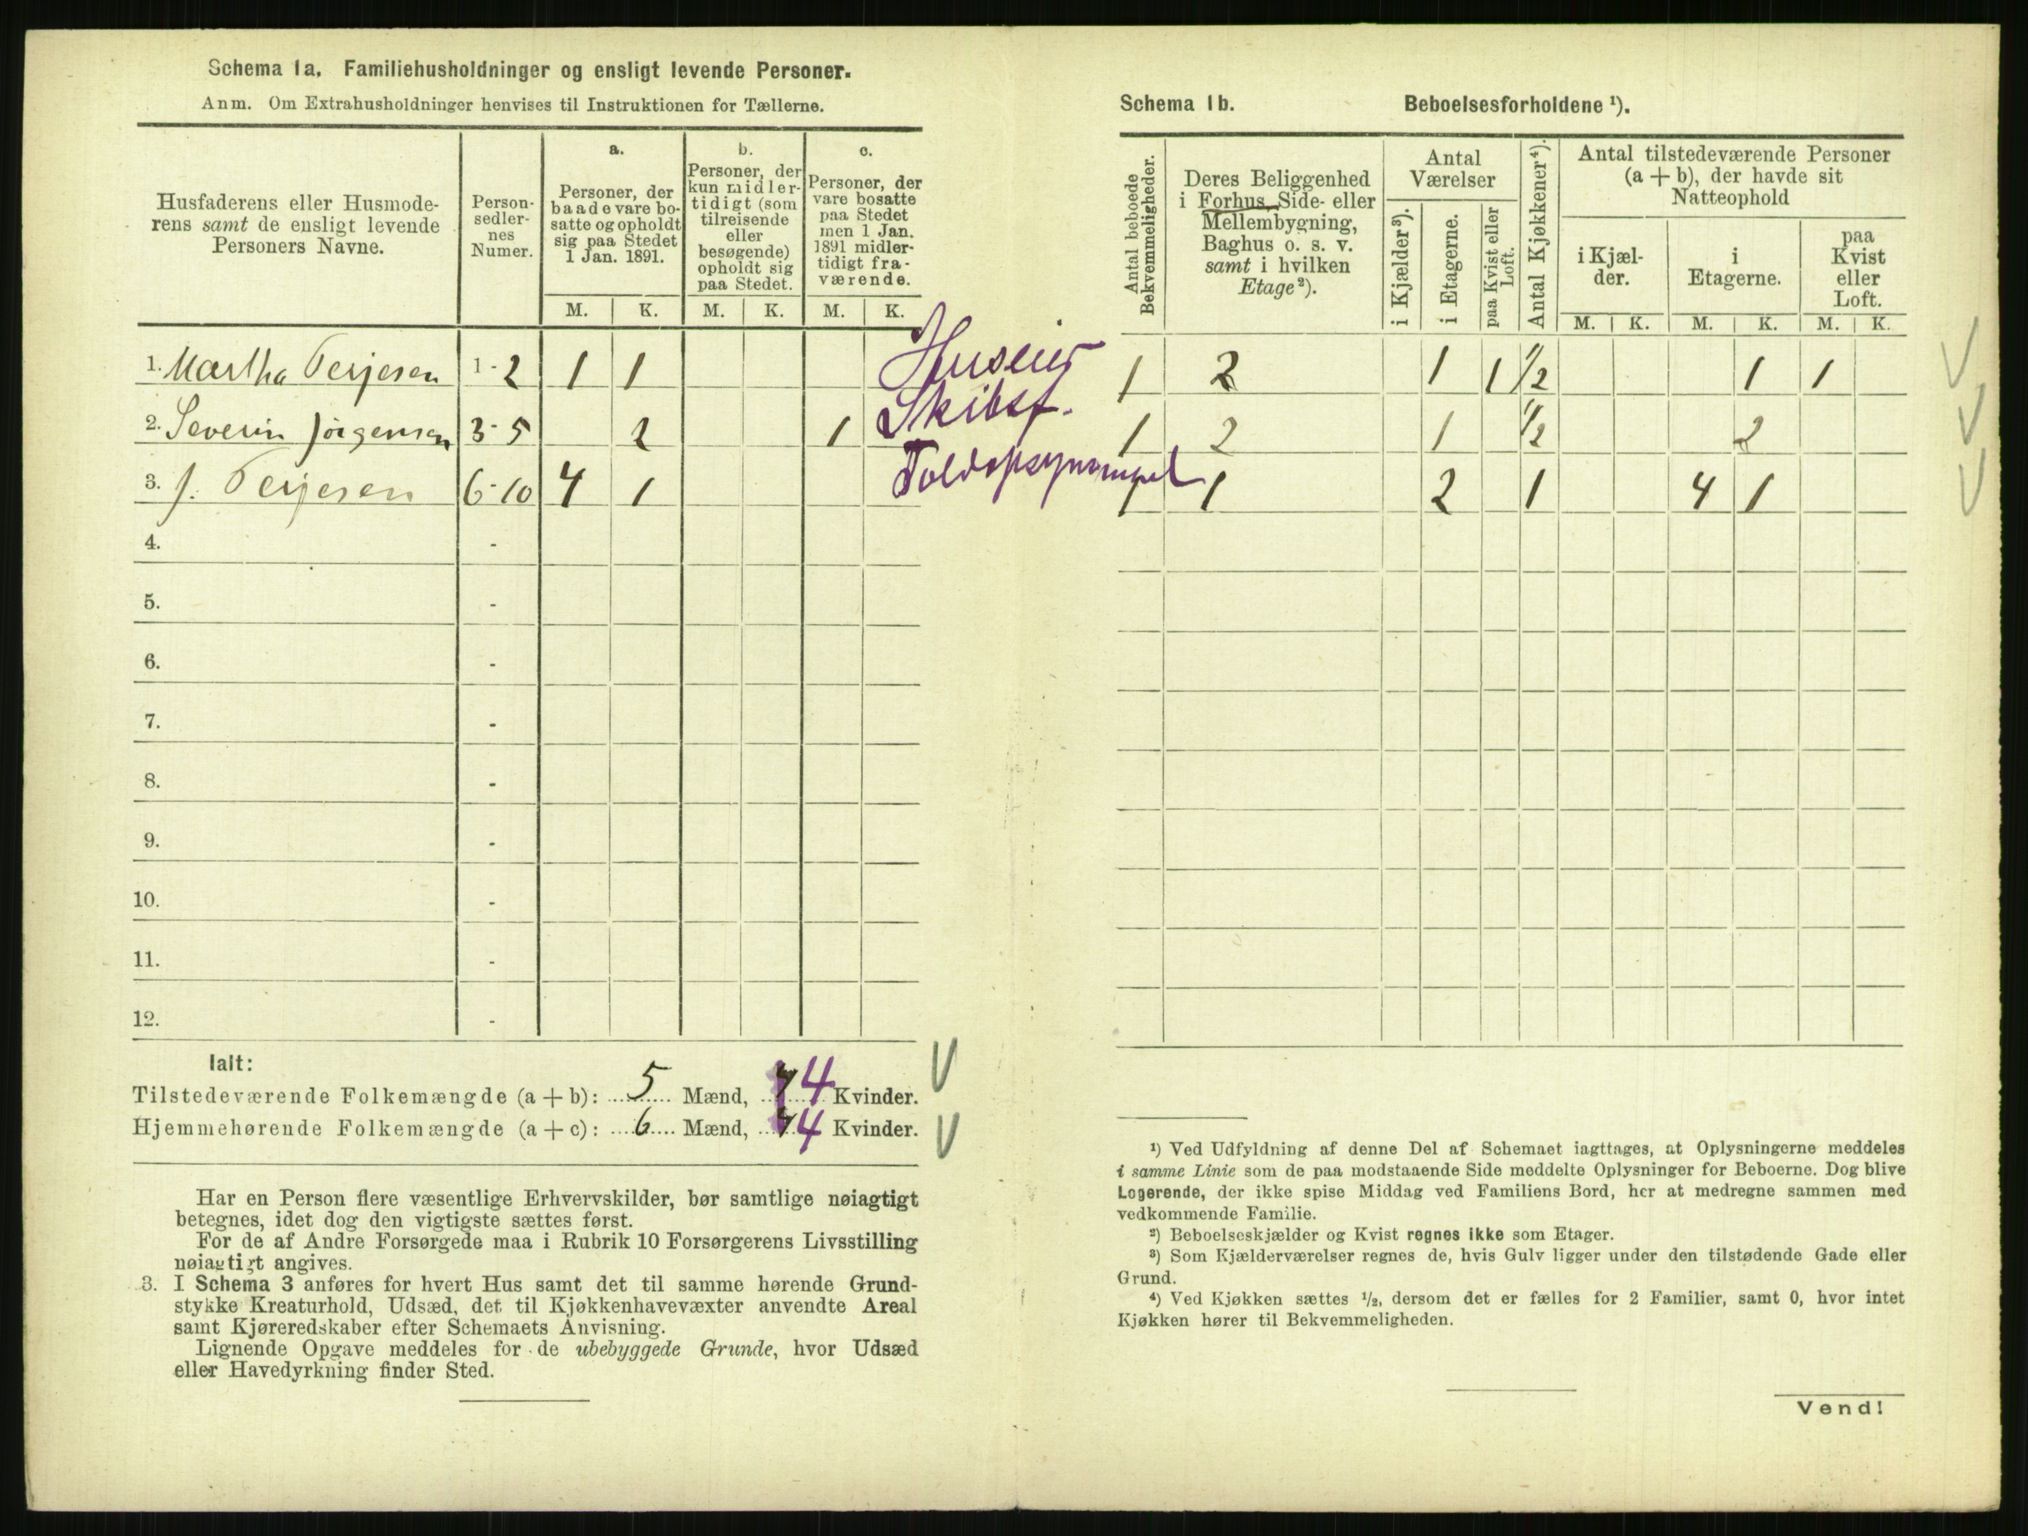 Schema 1a. Familiehusholdninger og ensligt levende Personer.
Anm. Om Extrahusholdninger henvises til Instruktionen for Tællerne.
Husfaderens eller Husmode-
rens samt de ensligt levende
Personers Navne.
Person-
sedler-
nes
Numer.
a.
Personer, der
baade vare bo-
satte og opholdt
sig paa Stedet
1 Jan. 1891.
b.
Personer, der
kun midler-
tidigt (som
tilreisende
eller
besøgende)
opholdt sig
paa Stedet.
c.
Personer, der
vare bosatte
paa Stedet
men 1 Jan.
1891 midler-
tidigt fra-
værende.
M. K. M. K. M. K.
1. Martha Terjesen 1-2 1 1 Huseier
2. Severin Jørgensen 3-5 2 1 Skibsf.
3. J. Terjesen 6-10 4 1
4. -
5. -
6. -
7. -
8. -
9. -
10. -
11. -
12. -
Ialt:
Tilstedeværende Folkemængde (a + b): 5 Mænd, 4 Kvinder.
Hjemmehørende Folkemængde (a + c): 6 Mænd, 4 Kvinder.
Har en Person flere væsentlige Erhvervskilder, bør samtlige nøiagtigt
betegnes, idet dog den vigtigste sættes først.
For de af Andre Forsørgede maa i Rubrik 10 Forsørgerens Livsstilling
nøiagtigt angives.
3. I Schema 3 anføres for hvert Hus samt det til samme hørende Grund-
stykke Kreaturhold, Udsæd, det til Kjøkkenhavevæxter anvendte Areal
samt Kjøreredskaber efter Schemaets Anvisning.
Lignende Opgave meddeles for de ubebyggede Grunde, hvor Udsæd
eller Havedyrkning finder Sted.
Schema 1b. Beboelsesforholdene ¹).
Antal beboede
Bekvemmeligheder.
Deres Beliggenhed
i Forhus, Side- eller
Mellembygning,
Baghus o. s. v.
samt i hvilken
Etage²).
Antal
Værelser
i Kjælder³).
i Etagerne.
paa Kvist eller
Loft.
Antal Kjøkkener⁴).
Antal tilstedeværende Personer
(a + b), der havde sit
Natteophold
i Kjæl-
der.
i
Etagerne.
paa
Kvist
eller
Loft.
M. K. M. K. M. K.
1 2 1 1 1/2 1 1
1 2 1 1/2 2
1 1 2 1 4 1
¹) Ved Udfyldning af denne Del af Schemaet iagttages, at Oplysningerne meddeles
i samme Linie som de paa modstaaende Side meddelte Oplysninger for Beboerne. Dog blive
Logerende, der ikke spise Middag ved Familiens Bord, her at medregne sammen med
vedkommende Familie.
²) Beboelseskjælder og Kvist regnes ikke som Etager.
³) Som Kjælderværelser regnes de, hvis Gulv ligger under den tilstødende Gade eller
Grund.
⁴) Ved Kjøkken sættes ½, dersom det er fælles for 2 Familier, samt 0, hvor intet
Kjøkken hører til Bekvemmeligheden.
Vend!